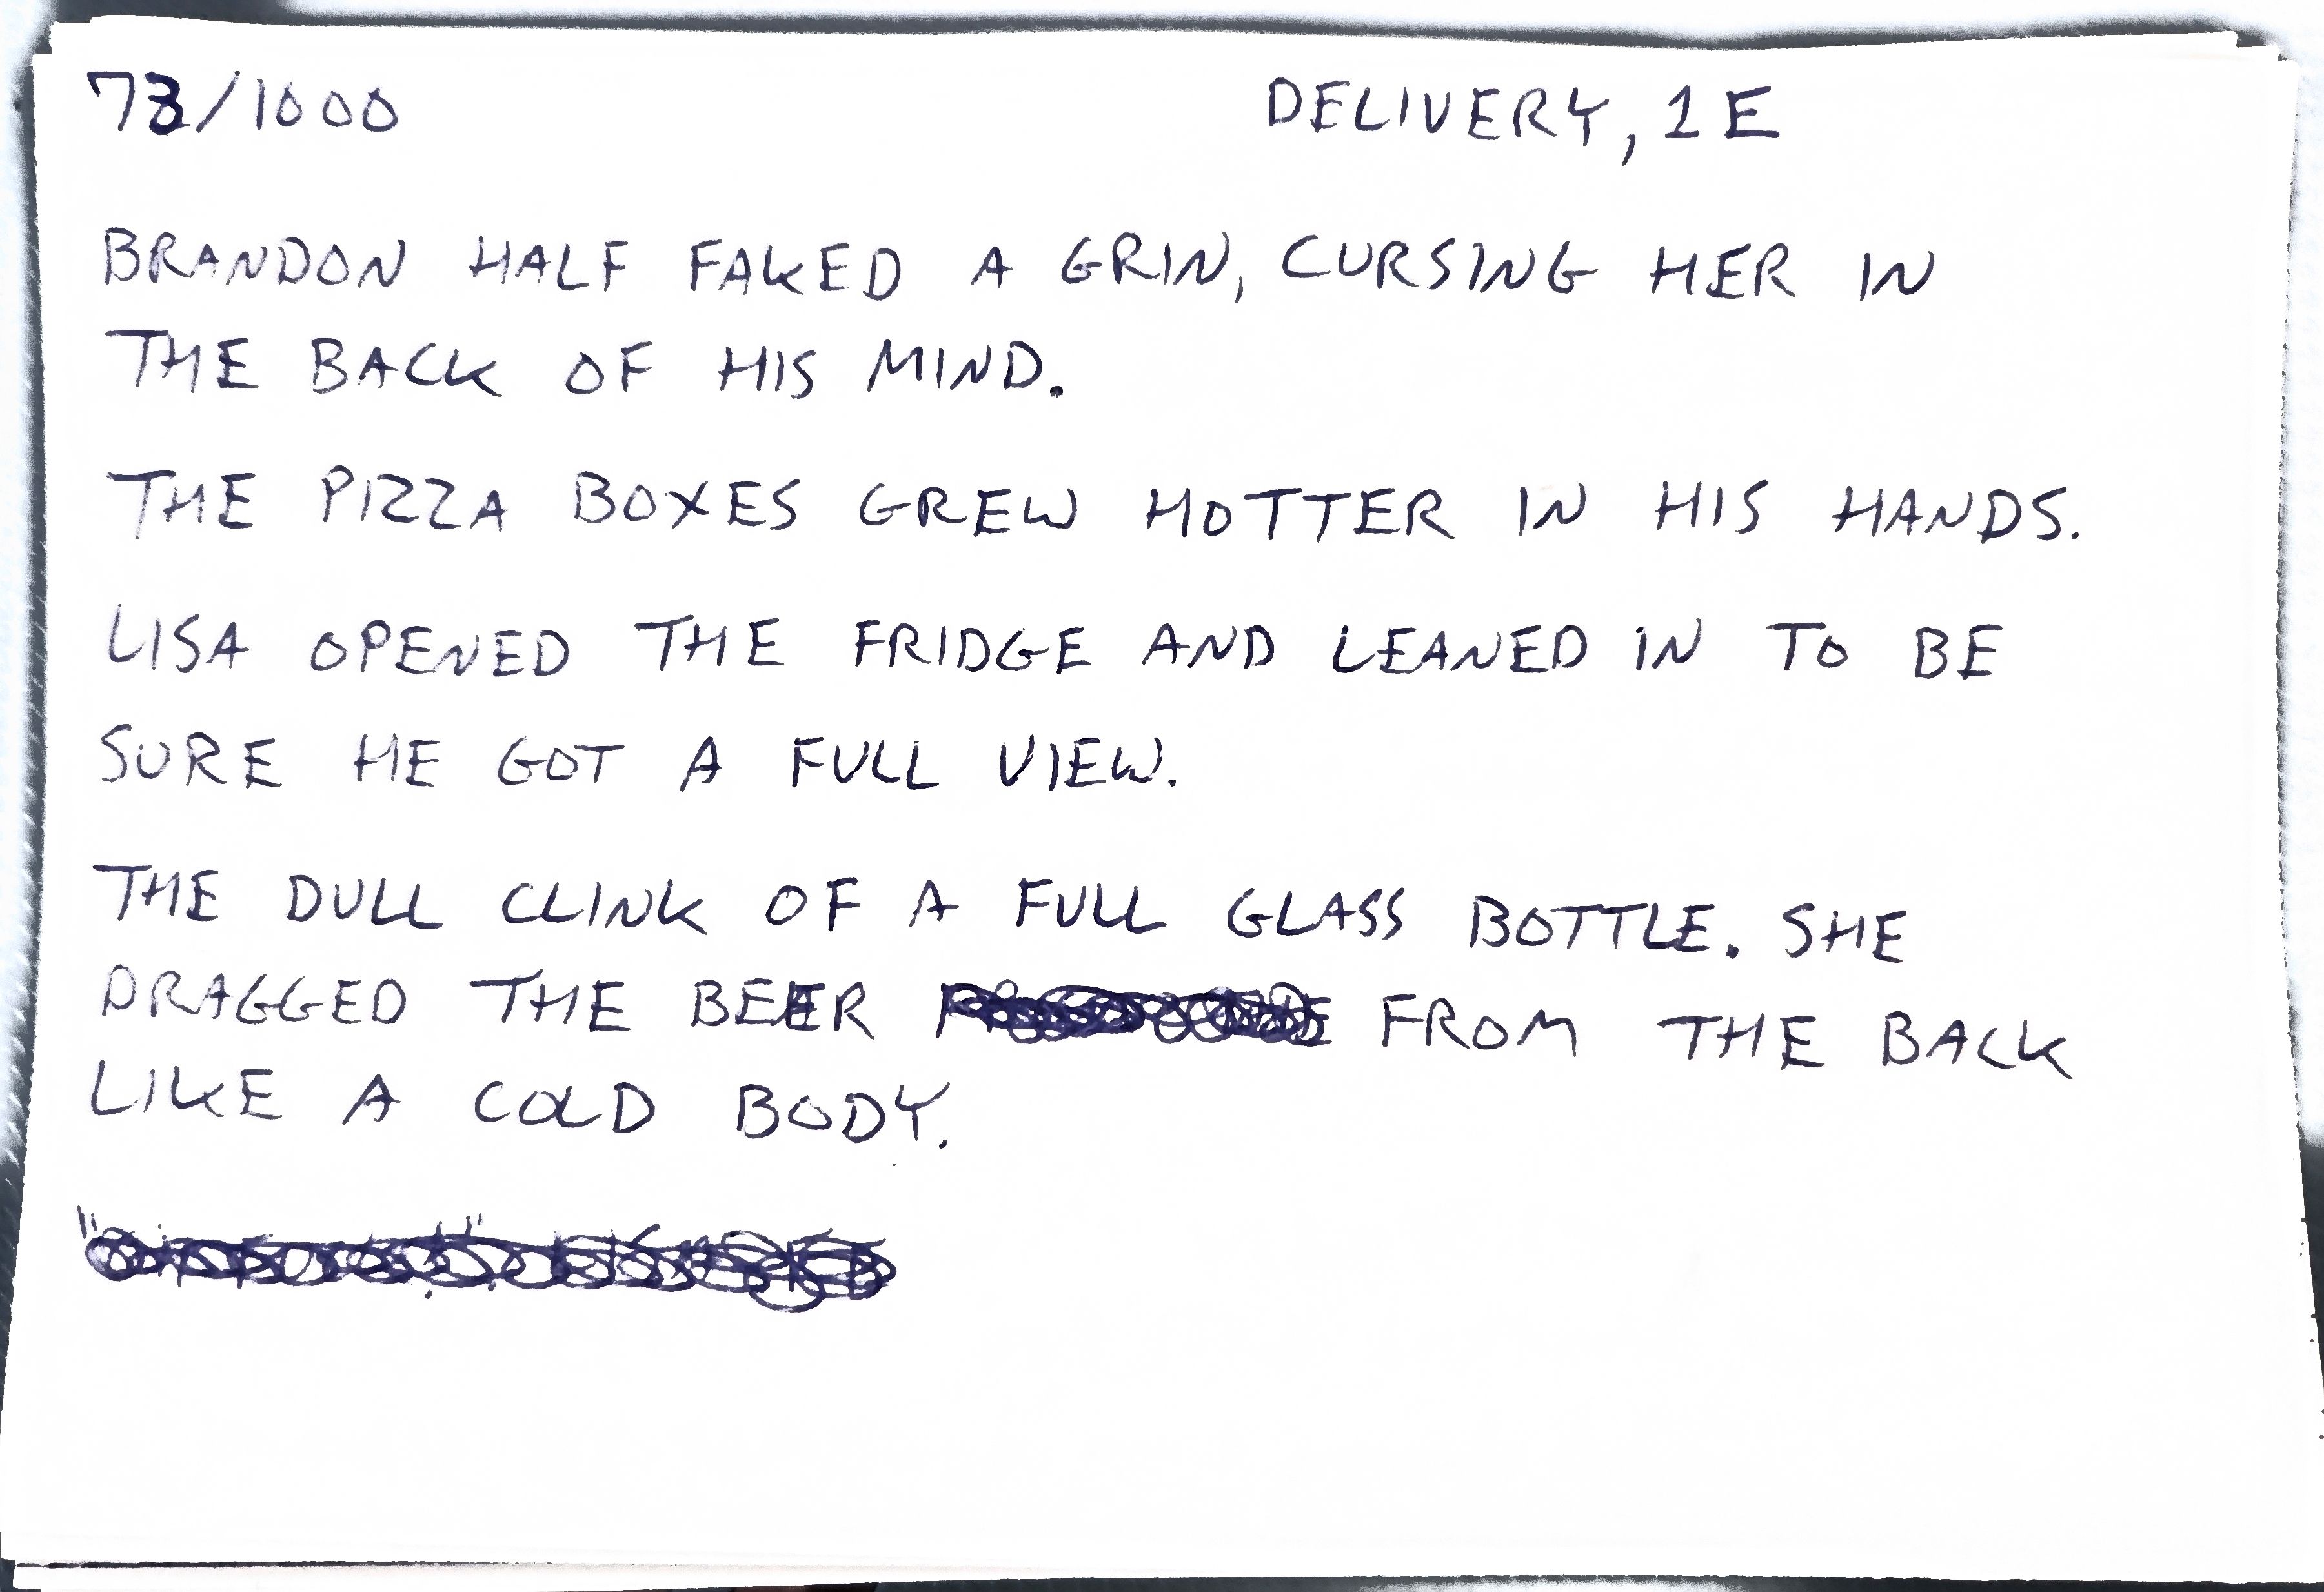 73/1000 DELIVERY, 1E
BRANDON HALF FAKED A GRIN, CURSING HER IN
THE BACK OF HIS MIND.
THE PIZZA BOXES GREW HOTTER IN HIS HANDS.
LISA OPENED THE FRIDGE AND LEANED IN TO BE
SURE HE GOT A FULL VIEW.
THE DULL CLINK OF A FULL GLASS BOTTLE. SHE
DRAGGED THE BEER FROM THE BACK
LIKE A COLD BODY.